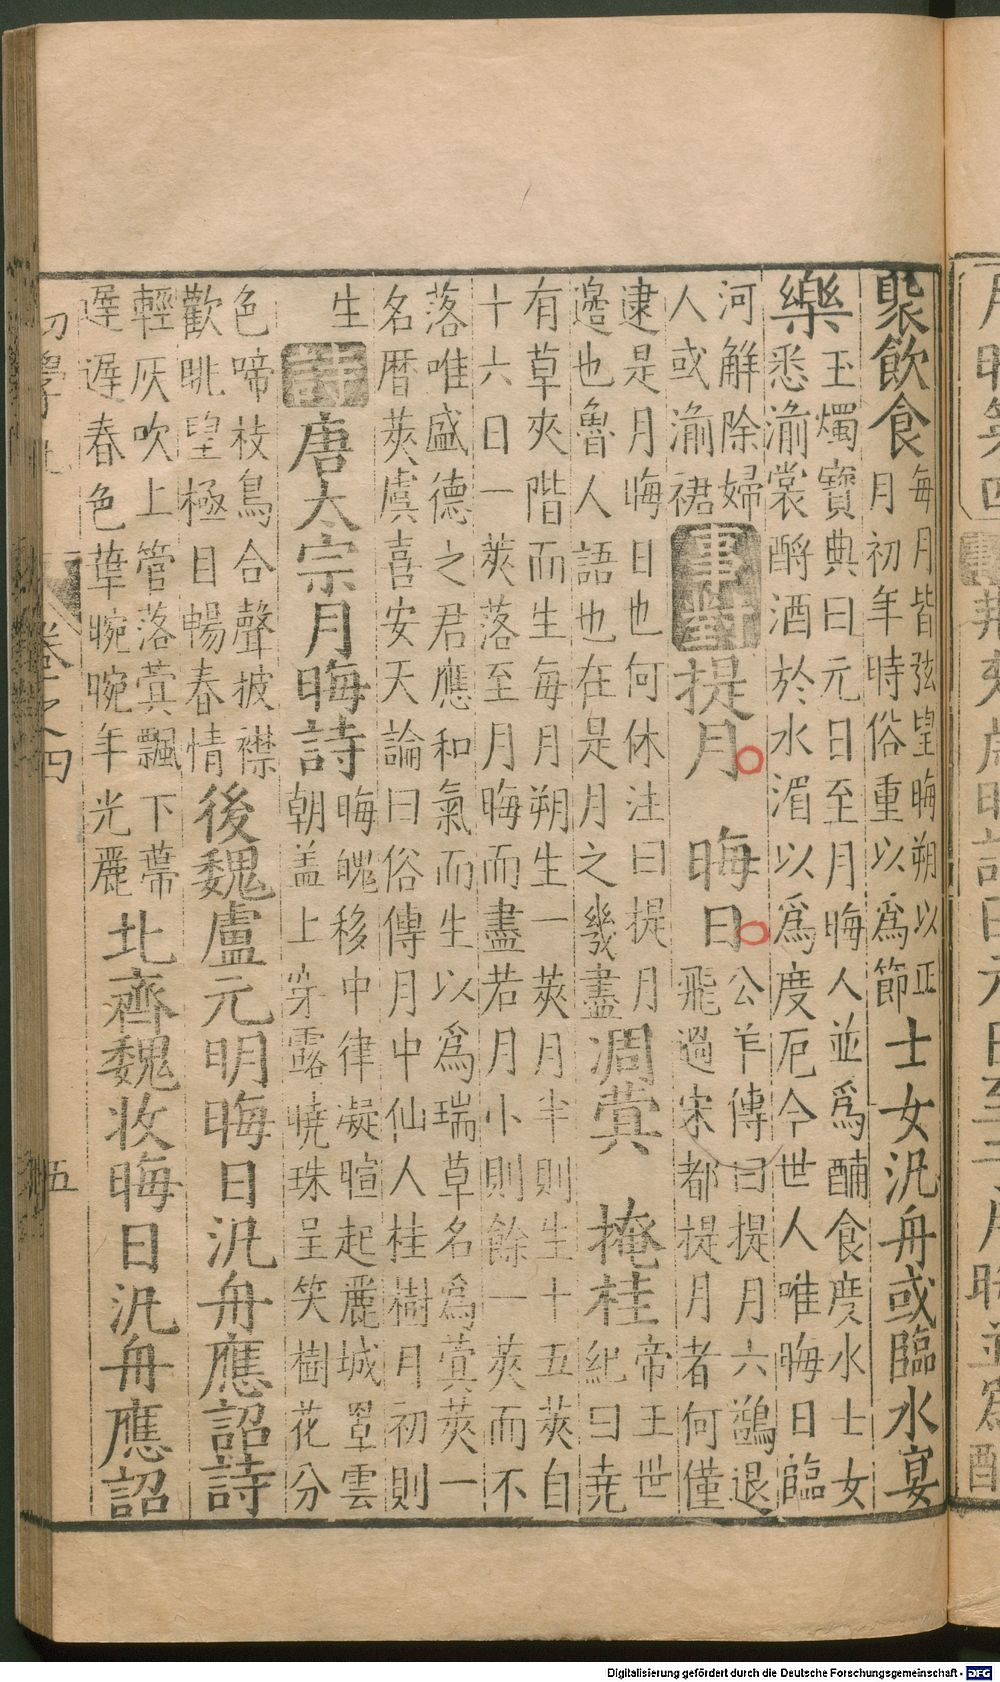 月晦第四
聚飲食
每月皆弦望晦朔以正
月初年時俗重以爲節
士女汎舟或臨水宴
樂
玉燭寶典曰元日至月晦人並爲酺食度水士女
悉湔裳酹酒於水湄以爲度厄今世人唯晦日臨
河解除婦
人或湔裙
事對
提月　晦日
公羊傳曰提月六鷁退
飛過宋都提月者何僅
逮是月晦日也何休注曰提月
邊也魯人語也在是月之幾盡
凋蓂　掩桂
帝王世
紀曰堯
有草夾階而生每月朔生一莢月半則生十五莢自
十六日一莢落至月晦而盡若月小則餘一莢而不
落唯盛德之君應和氣而生以爲瑞草名爲蓂莢一
名曆莢虞喜安天論曰俗傳月中仙人桂樹月初則
生
詩
唐太宗月晦詩
晦魄移中律凝暄起麗城罩雲
朝盖上穿露曉珠呈笑樹花分
色啼枝鳥合聲披襟
歡眺望極目暢春情
後魏盧元明晦日汎舟應詔詩
輕灰吹上管落蓂飄下蔕
遲遲春色華晼晼年光麗
北齊魏收晦日汎舟應詔
初學記　卷之四　五
Digitalisierung gefördert durch die Deutsche Forschungsgemeinschaft - DFG